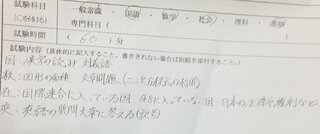 試験科目
(○を付ける)
一般常識 ・ 国語 ・ 数学 ・ 社会 ・ 理科 ・ 英語
専門科目(
試験時間
( 60 ) 分
試験内容 (具体的に記入すること。書ききれない場合は別紙を添付すること。)
国:漢字の読み 対義語
数:図形の面積 文章問題(二次方程式の利用)
社:国際連合に入っている国 G8に入っていない国 日本の
英:英語の質問文に答える(記号)